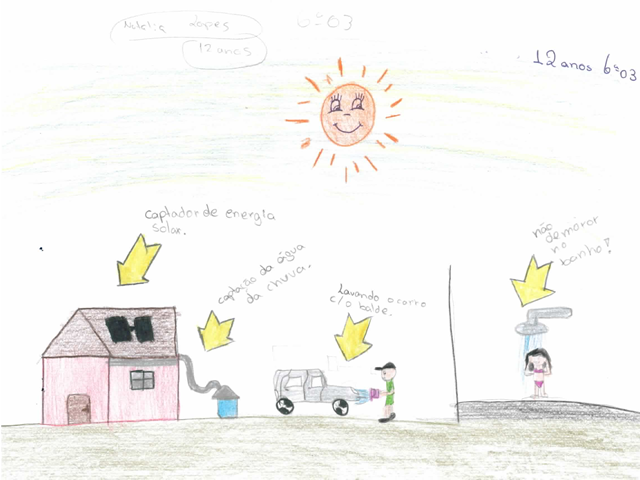 Natalia Lopes 6º03
12 anos
12 anos 6º03
captador de energia
solar.
captação da água
da chuva.
Lavando o carro
c/o balde.
não
demorar
no
banho!